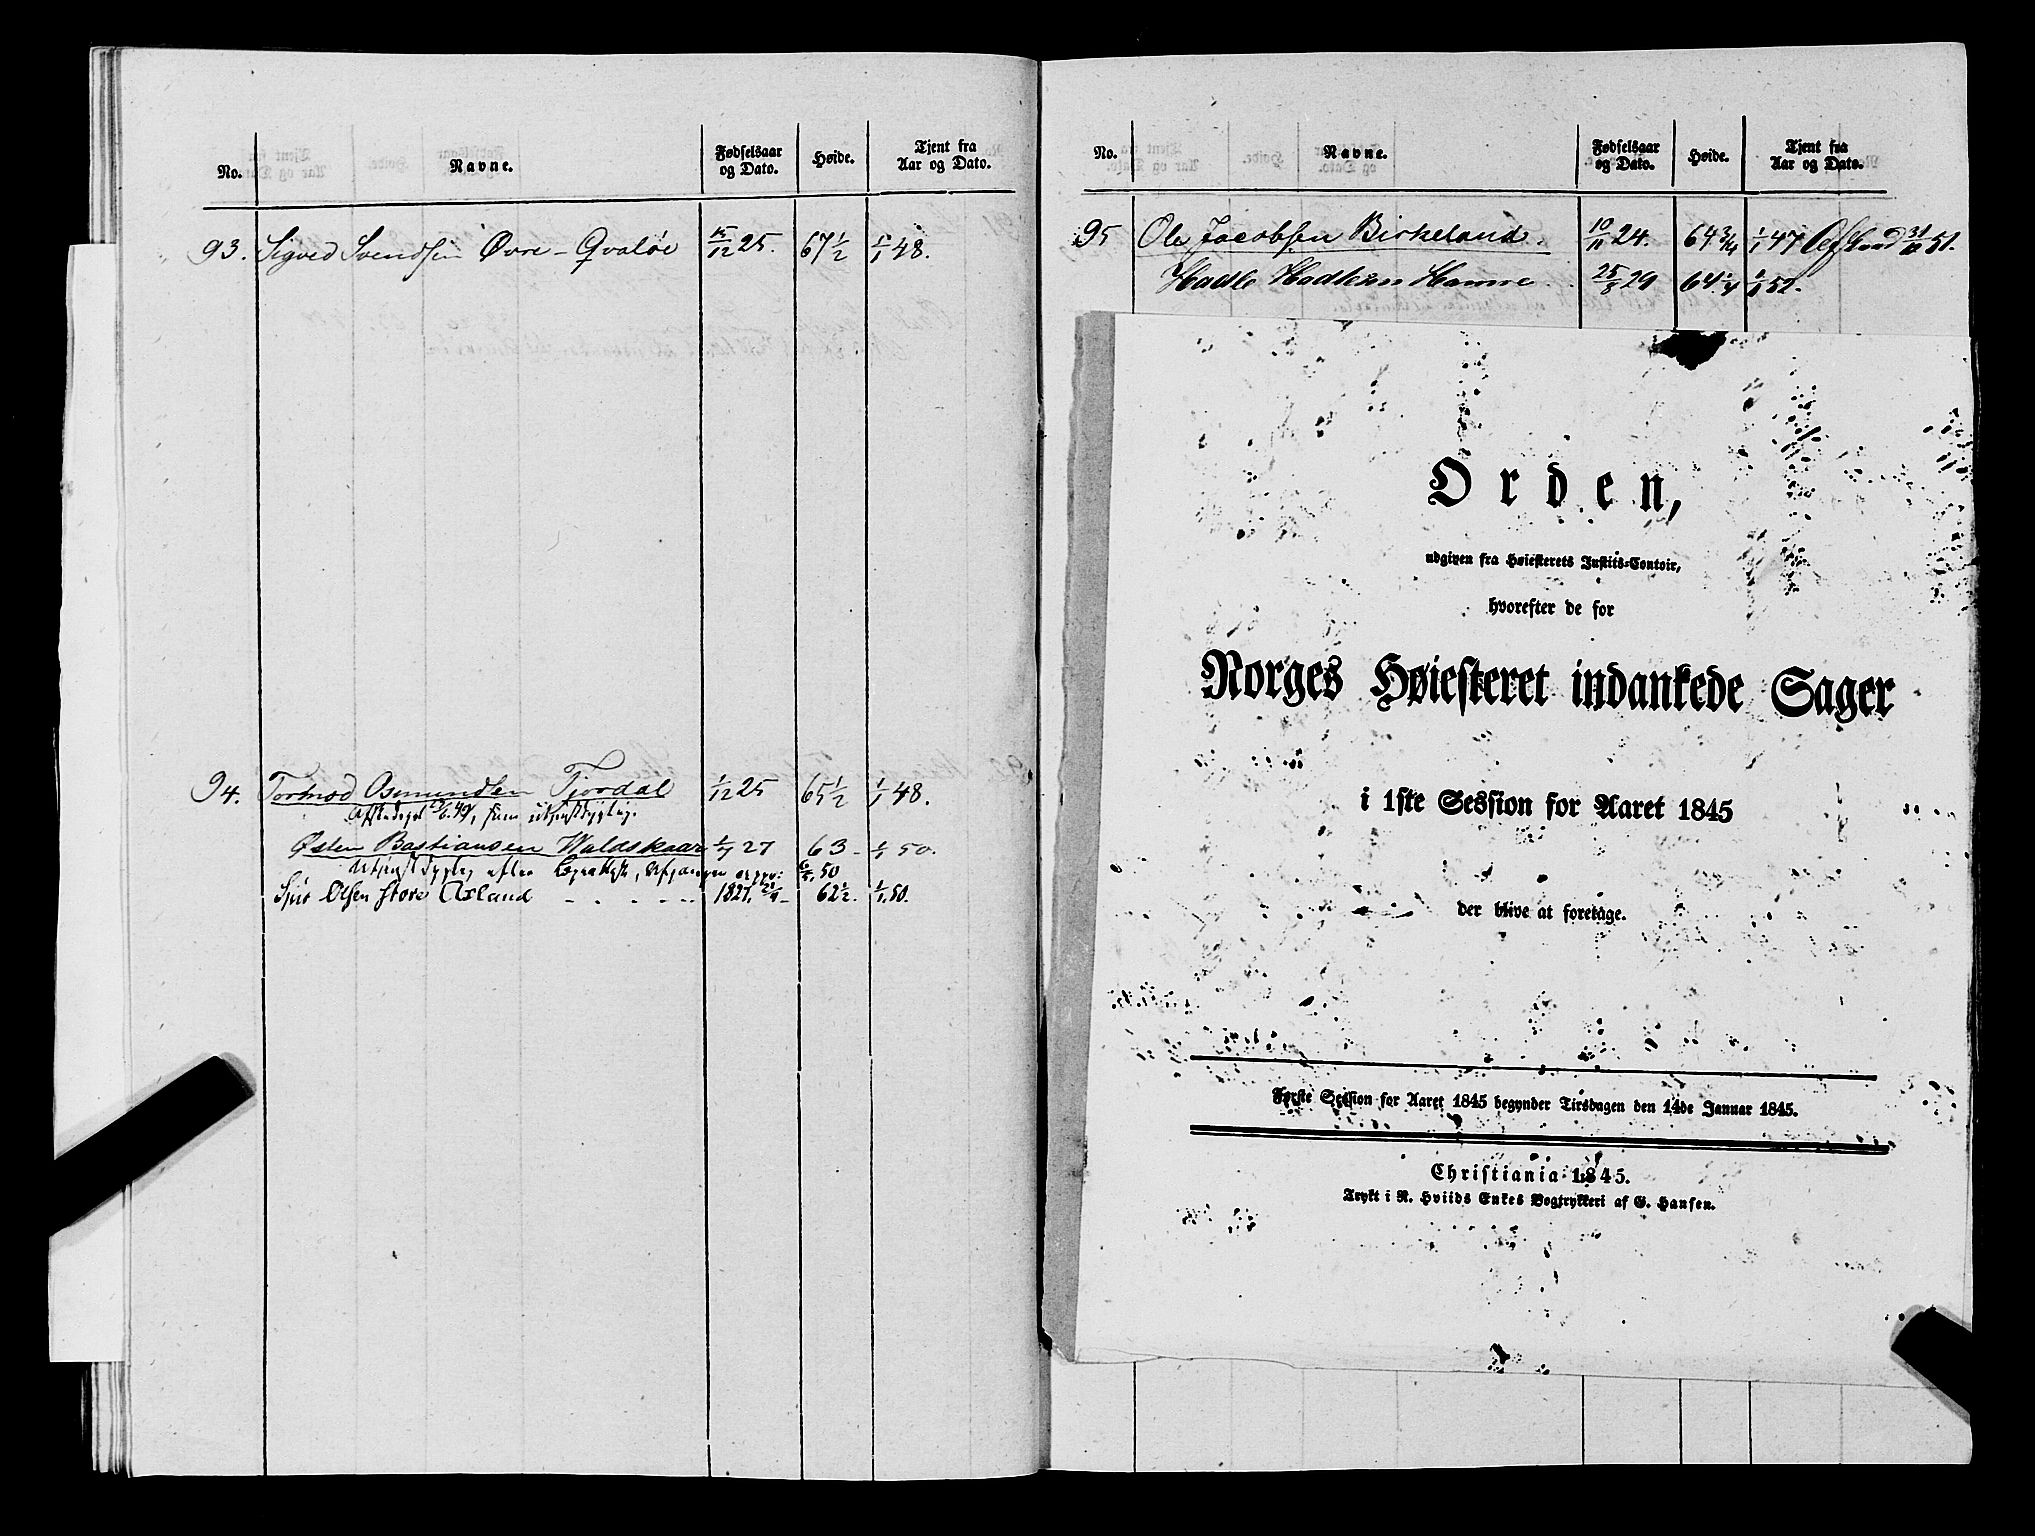 No. Navne. Fødselsaar og Dato. Høide. Tjent fra Aar og Dato.
93. Sigved Svendsen Øvre-Qvaløe 15/12 25. 67 1/2 1/1 48.
94. Tormod Osmundsen Tjordal 1/12 25 65 1/2 1/1 48.
Afskediget 49, som utjenstdygtig.
Østen Bastiansen Waldskaar 1/7 27 63 - 1/1 50.
Utjenstdygtig efter 50
Sjur Olsen store Axland - - - - - 1827. 62 1/2. 1/1.50.
No. Navne. Fødselsaar og Dato. Høide. Tjent fra Aar og Dato.
95 Ole Jacobsen Birkeland. 10/11 24. 64 3/4 1/1 47 Afskeed 31/12 51.
Hadle Hadlesen Hamre. 25/8 29 64 1/4 1/1 52.
Orden,
udgiven fra Høiesterets Justits-Contoir,
hvorefter de for
Norges Høiesteret indankede Sager
i 1ste Session for Aaret 1845
der blive at foretage.
Første Session for Aaret 1845 begynder Tirsdagen den 14de Januar 1845.
Christiania 1845.
Trykt i R. Hviids Enkes Bogtrykkeri af G. Hansen.